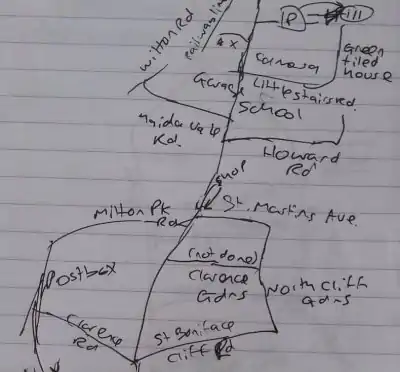 P
Wilton Rd
railway line
x
Green
tiled
house
Garage
Littlestairs rd.
School
Howard
Rd
shop
St. Martins Ave.
Milton Pk
Rd
(not done)
Clarence
Gdns
North Cliff
Gdns
Postbox
Clarence
Rd
St Boniface
Cliff Rd